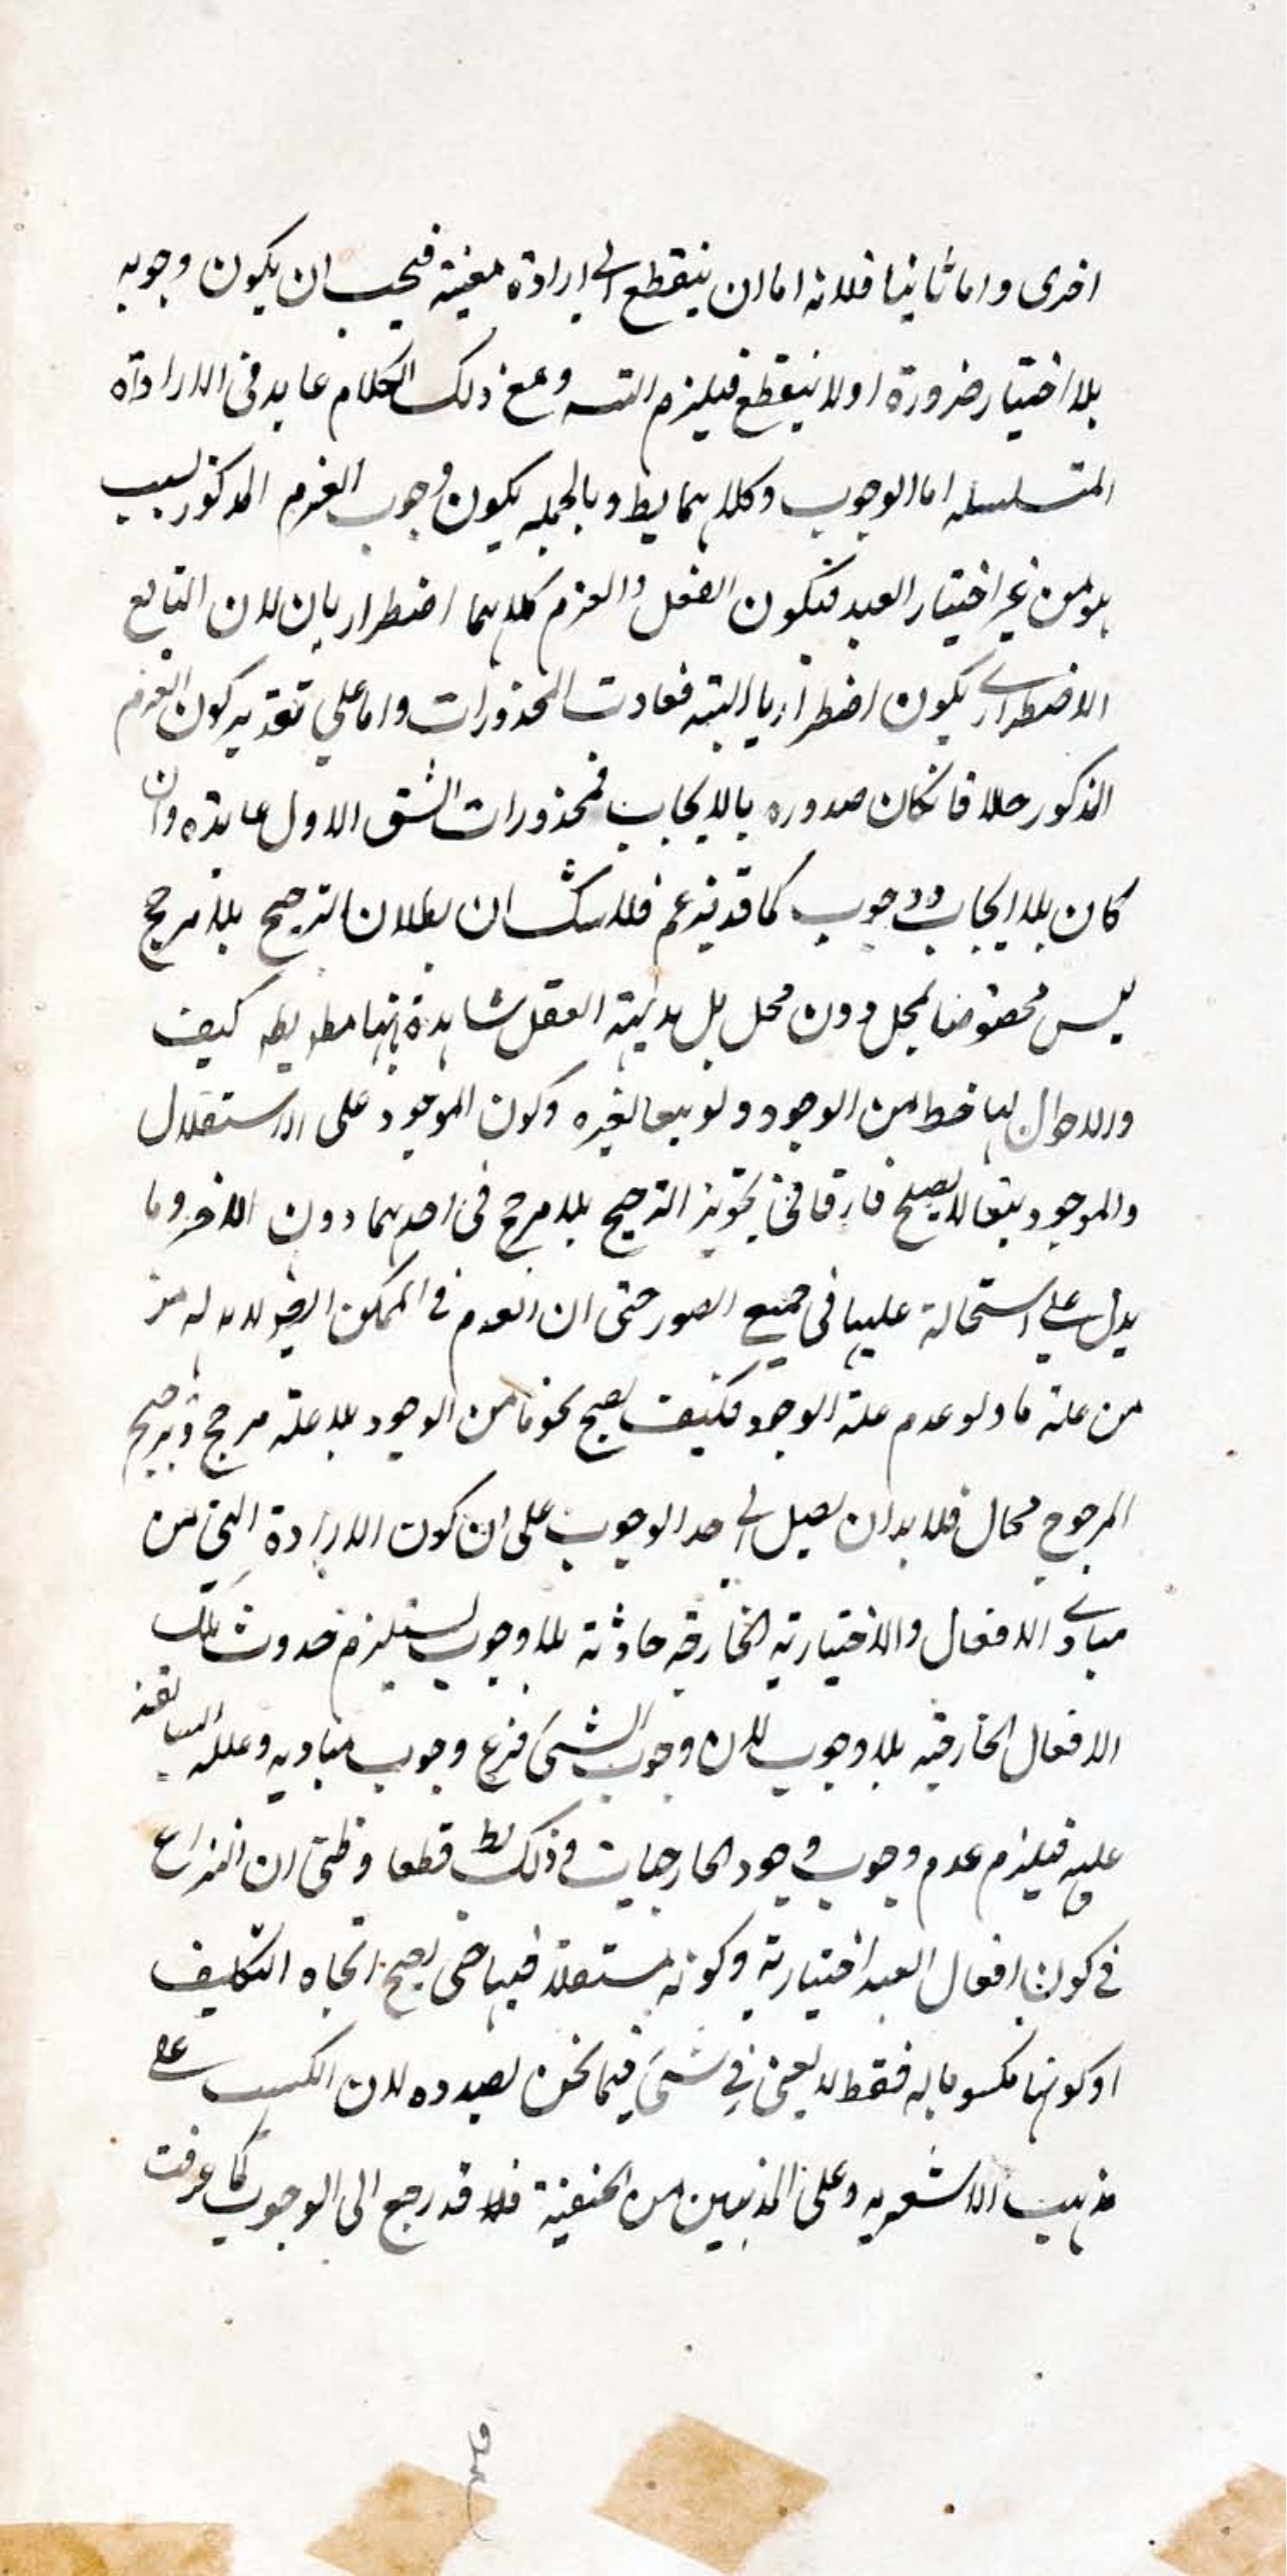 اخرى واما ثانيا فلانه اما ان ينقطع الى ارادة معينة فيجب ان يكون وجوبه
بلا اختيار ضرورة اولا ينقطع فيلزم التسه ومع ذلك الكلام عايد فى الارادة
المتسلسله اما الوجوب وكلاهما يط وبالجمله يكون وجوب العزم المذكور بسبب
هو من غير اختيار العبد فيكون الفعل والعزم كلاهما اضطراريان لان التابع
الاضطرارى يكون اضطراريا البته فعادت المحذورات واما على تقدير كون العزم
المذكور حلا فانكان صدوره بالايجاب فمحذورات الشق الاول عايده وان
كان بلا ايجاب ووجوب كما قد يزعم فلا شك ان بطلان الترجيح بلا مرجح
ليس مخصوصا بمحل دون محل بل بديهة العقل شاهدة بانها مط يط كيف
والاحوال لها خط من الوجود ولو تبعا لغيره وكون الموجود على الاستقلال
والموجود تبعا لا يصلح فارقا فى تجويز الترجيح بلا مرجح فى احدهما دون الاخر وما
يدل على استحالة عليها فى جميع الصور حتى ان العدم فى الممكن ايض لا بد له من
من علة ما ولو عدم علة الوجود فكيف يصح نحو ما من الوجود بلا علة مرجح وترجيح
المرجوح محال فلا بد ان يصل الى حد الوجوب على ان كون الارادة التى من
مبادى الافعال والاختيارية الخارقه حادثة بلا وجوب يستلزم حدوث تلك
الافعال الخارقيه بلا وجوب لان وجوب الشئ فرع وجوب مباديه وعلله السابقه
عليه فيلزم عدم وجوب وجود الخارجيات وذلك بط قطعا وظنى ان النزاع
فى كون افعال العبد اختيارية وكونه مستقلا فيها حتى يصح اتجاه التكليف
او كونها مكسوبا له فقط لا يغنى فى شئ فيما نحن بصدده لان الكسب على
مذهب الاشعريه وعلى المذهبين من الحنفية فلا قد رجع الى الوجوب كما عرفت